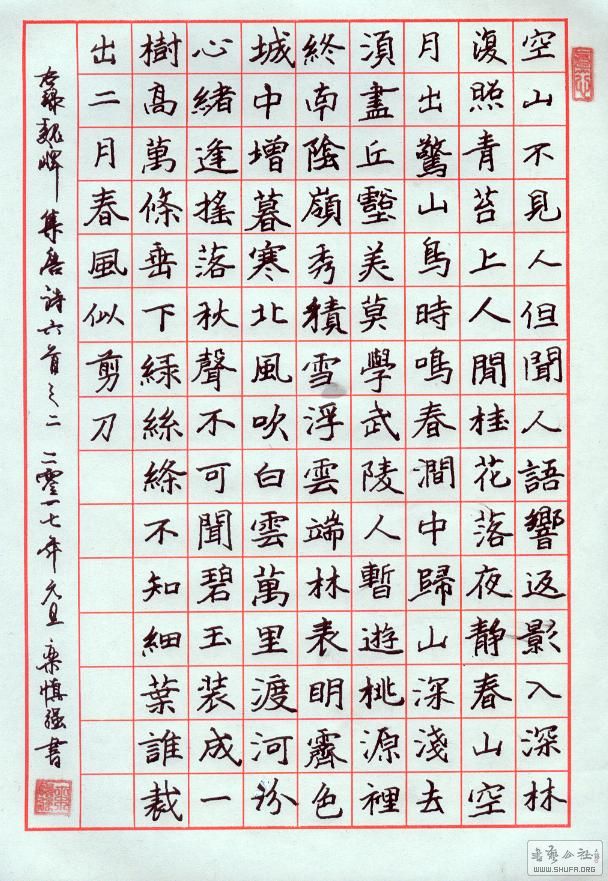 空山不見人但聞人語響返影入深林
復照青苔上人閒桂花落夜靜春山空
月出驚山鳥時鳴春澗中歸山深淺去
須盡丘壑美莫學武陵人暫遊桃源裡
終南陰嶺秀積雪浮雲端林表明霽色
城中增暮寒北風吹白雲萬里渡河汾
心緒逢搖落秋聲不可聞碧玉装成一
樹高萬條垂下緑絲絛不知細葉誰裁
出二月春風似剪刀
右録魏碑 集唐詩六首之二 二零一七年元旦 栾慎强書
WWW.SHUFA.ORG